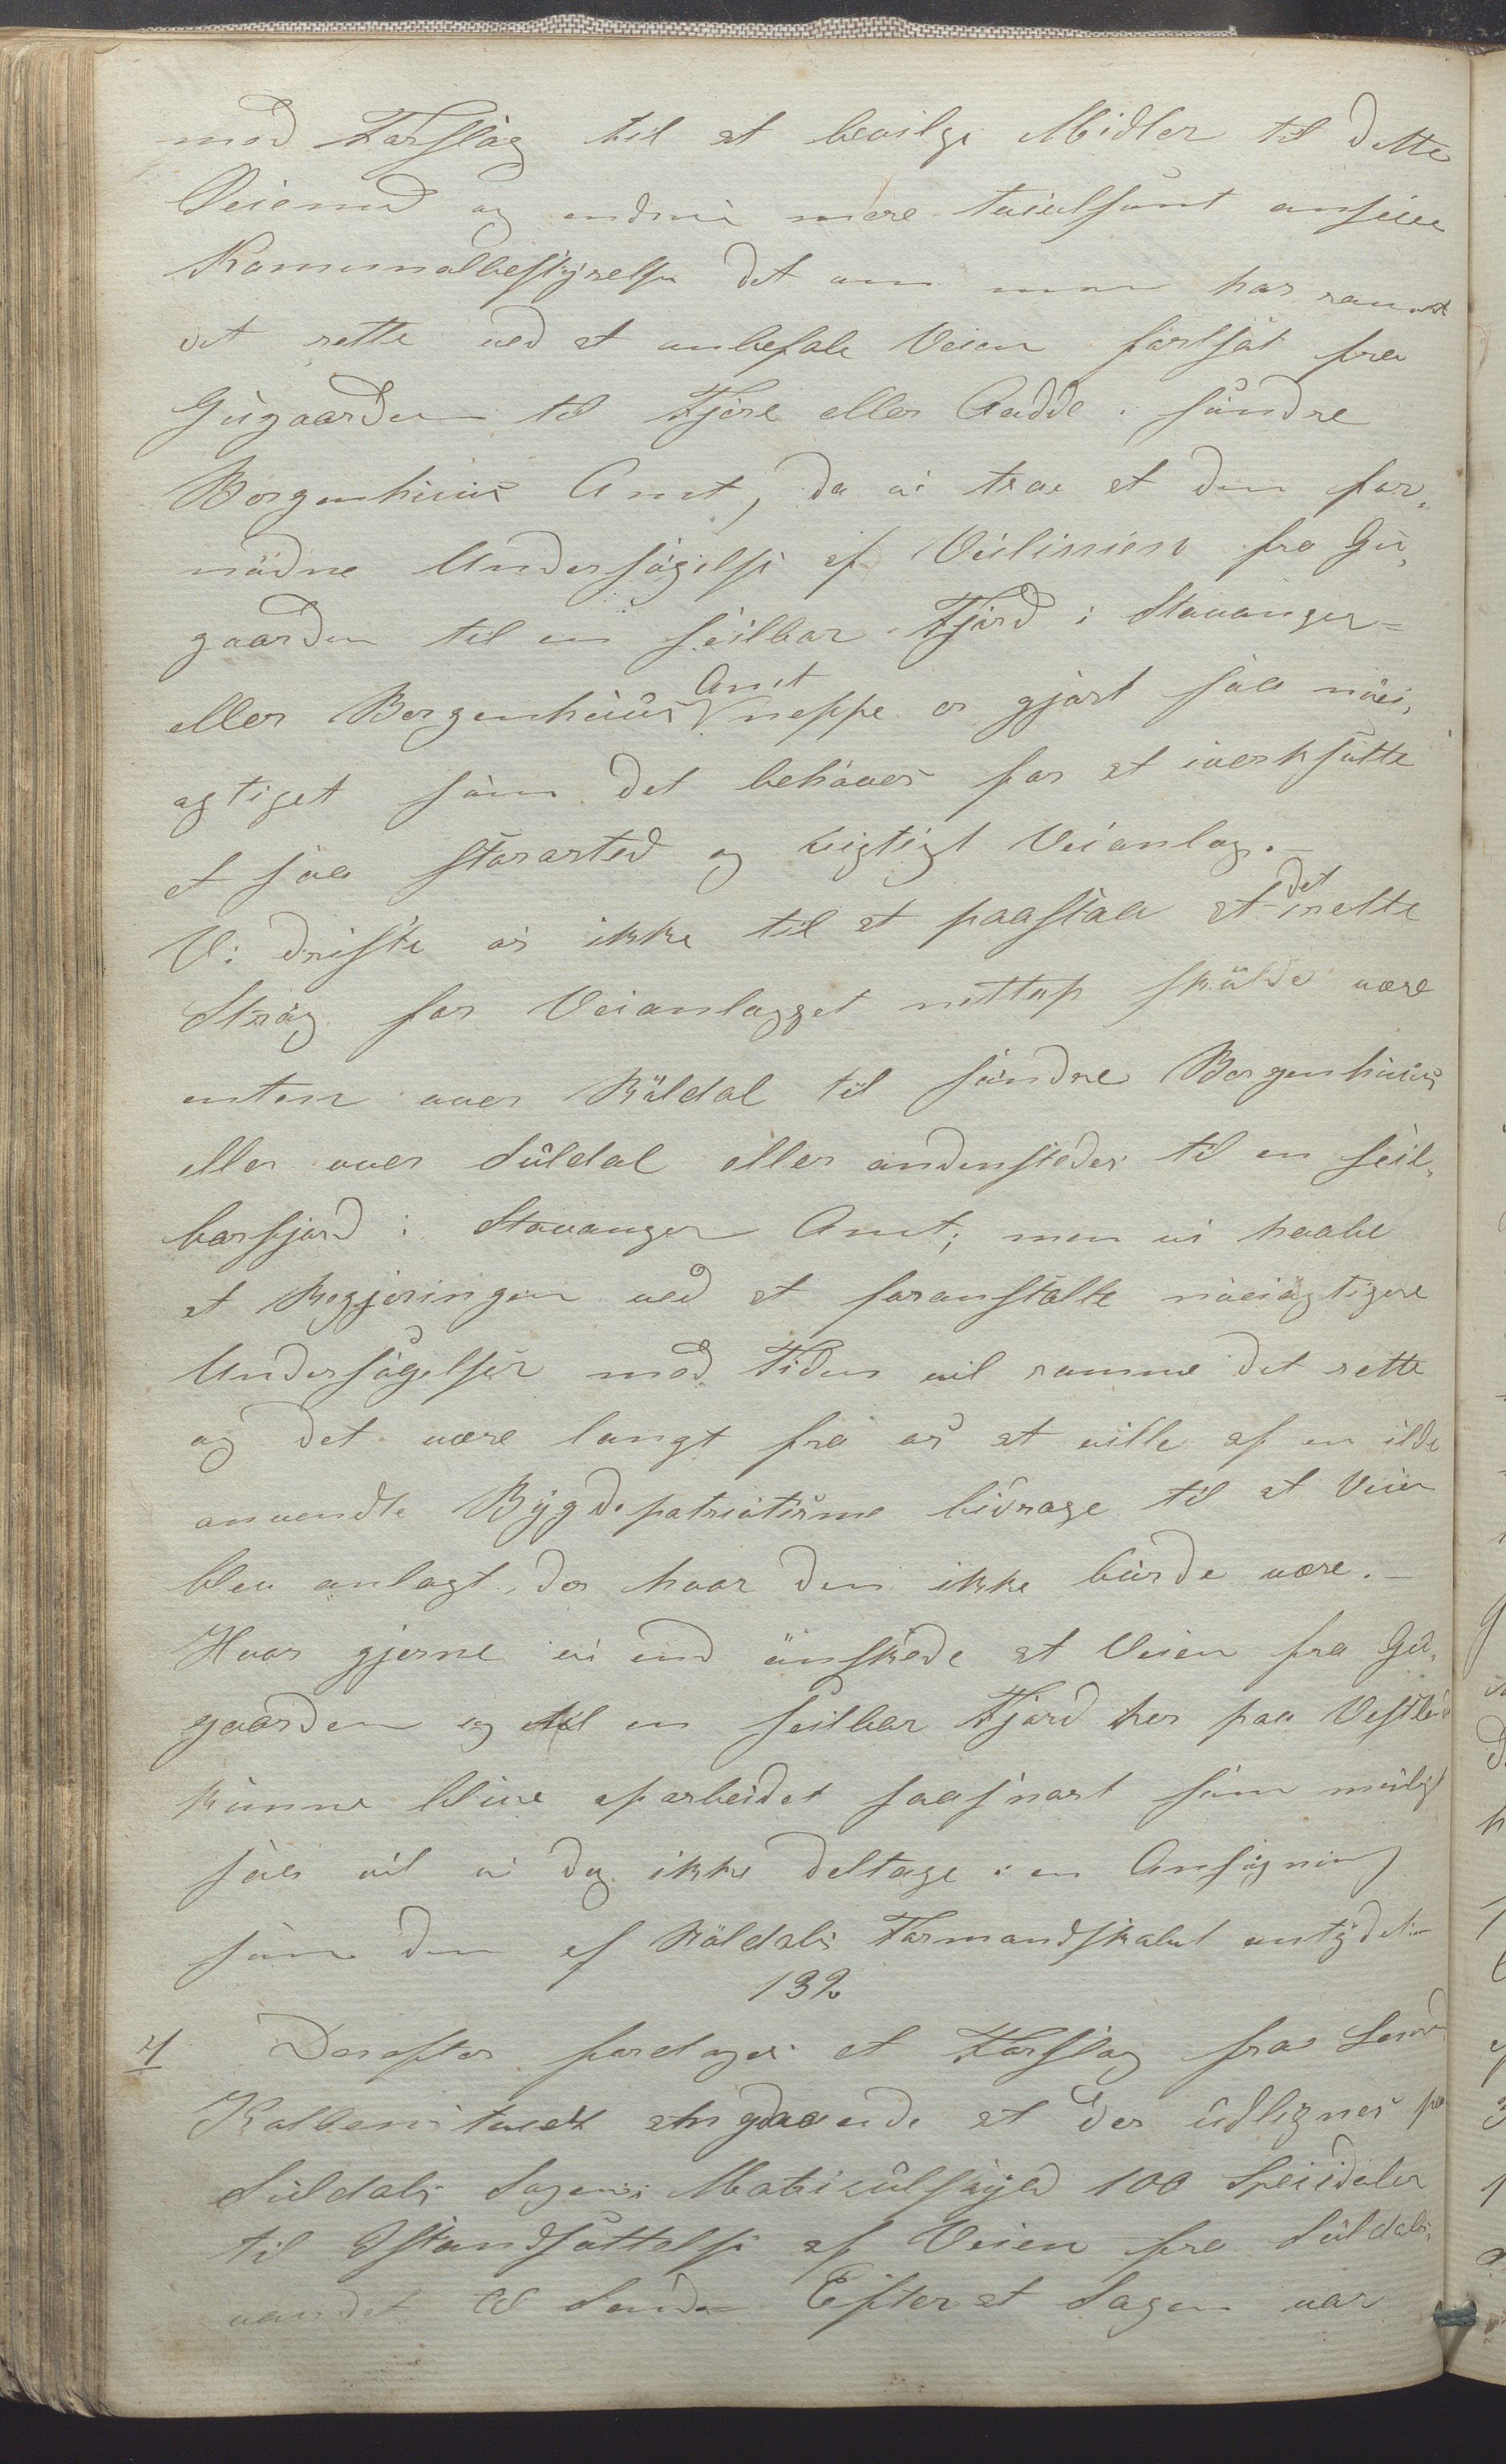 med Forslag til at bevilge Midler til dette
Veiemed og endnu mere tvivlsomt anseer
Kommunalbestyrelse det om man har rammet
det rette ved at anbefale Veien fortsat fra
Gugaarden til Fjære eller Aadde i søndre
Bergenhuus Amt, da vi troe at den for„
nødne Undersøgelse af Veilinien fra Gu„
gaarden til en seilbar Fjord i Stavanger=
eller Bergenhuus Amt neppe er gjort saa nøi„
agtiget som det behøves for at iverksætte
et saa storarted og vigtigt Veianlæg.–
Vi driste os ikke til at paastaa at det rette
Strøg for Veianlægget nettop skulde være
enten over Röldal til søndre Bergenhuus
eller over Suldal eller andensteder til en seil„
barfjord i Stavanger Amt; men vi haabe
at Regjeringen ved at foranstalte nøiagtigere
Undersøgelser med Tiden vil ramme det rette
og det være langt fra os at ville af en ilde
anvendte Bygdepatriotisme bidrage til at Veien
blev anlagt der hvor den ikke burde være.–
Hvor gjerne vi end ønskede at Veien fra Gu„
gaarden og til en seilbar Fjord her paa Vestland
kunne blive oparbeidet saasnart som muligt
saa vil vi dog ikke deltage i en Ansøgning
som den af Röldals Formandskabet antydet.–
132
4 Derefter foretoges et Forslag fra
Kolbenstvedt angaaende at der udlignes paa
Suldals Sogns Matrikulskyld 100 Speisdaler
til Istandsættelse af Veien fra Suldals„
vandet til Sand. Efter at Sagen var